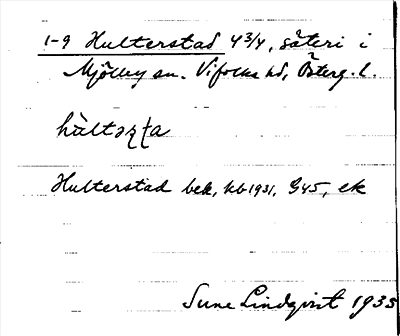 1-9 Hulterstad 4 3/4, säteri i
Mjölby sn. Vifolka hd, Österg. l.
Hulterstad bek, kb 1931, G45, ek
Sune Lindqvist 1935